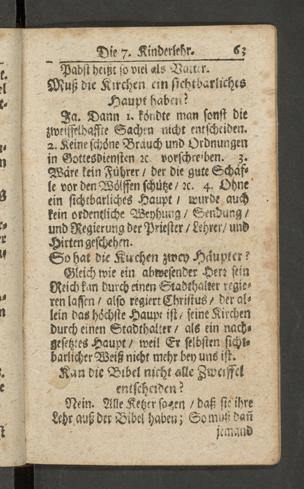 Die 7. Kinderlehr. 63
Pabst heißt so viel als Vatter.
Muß die Kirchen ein sichtbarliches
Haupt haben?
Ja. Dann 1. köndte man sonst die
zweiffelhaffte Sachen nicht entscheiden.
2. Keine schöne Bräuch und Ordnungen
in Gottesdiensten ꝛc. vorschreiben. 3.
Wäre kein Führer / der die gute Schäf-
le vor den Wölffen schütze / ꝛc. 4. Ohne
ein sichtbarliches Haupt / wurde auch
kein ordentliche Weyhung / Sendung /
und Regierung der Priester / Lehrer / und
Hirten geschehen.
So hat die Kirchen zwey Häupter?
Gleich wie ein abwesender Herr sein
Reich kan durch einen Stadthalter regie-
ren lassen / also regiert Christus / der al-
lein das höchste Haupt ist / seine Kirchen
durch einen Stadthalter / als ein nach-
gesetztes Haupt / weil Er selbsten sicht-
barlicher Weiß nicht mehr bey uns ist.
Kan die Bibel nicht alle Zweiffel
entscheiden?
Nein. Alle Ketzer sagen / daß sie ihre
Lehr auß der Bibel haben; So muß dañ
jemand